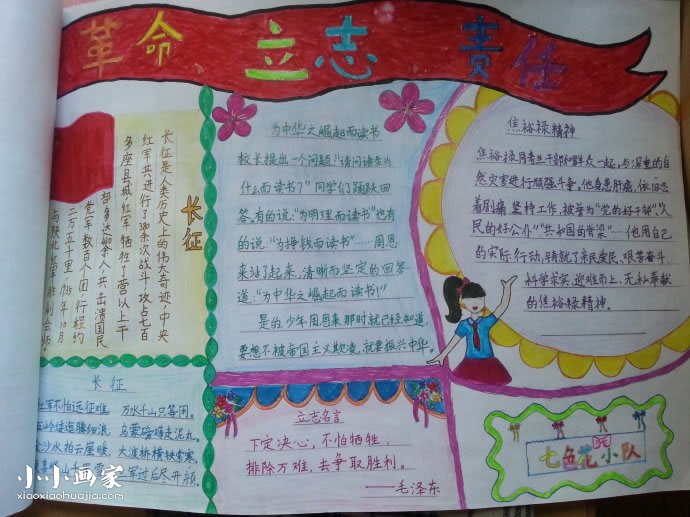 革命 立志 责任
长征
长征是人类历史上的伟大奇迹,中央
红军共进行了380余次战斗,攻占七百
多座县城,红军牺牲了营以上干
部多达430余人,共击溃国民
党军数百个团,行程约
二万五千里,1935年10月
与陕北红军胜利会师。
为中华之崛起而读书
校长提出一个问题:“请问诸生为
什么而读书?”同学们踊跃回
答。有的说:“为明理而读书”也有
的说:“为挣钱而读书”……周恩
来站了起来,清晰而坚定的回答
道:“为中华之崛起而读书!”
是的,少年周恩来那时就已经知道,
要想不被帝国主义欺凌,就要振兴中华。
焦裕禄精神
焦裕禄同者兰干部和群众一起,与深重的自
然灾害进行顽强斗争,他身患肝癌,依旧忍
着剧痛,坚持工作,被誉为“党的好干部”“人
民的好公仆”“共和国的脊梁”……他用自己
的实际行动,铸就了亲民爱民、艰苦奋斗、
科学求实、迎难而上、无私奉献
的焦裕禄精神。
长征
红军不怕远征难,万水千山只等闲。
岭逶迤腾细浪,乌蒙磅礴走泥丸。
金沙水拍云崖暖,大渡桥横铁索寒。
军过后尽开颜。
立志名言
下定决心,不怕牺牲,
排除万难,去争取胜利。
——毛泽东
七色花小队
小小画家
xiaoxiaohuajia.com